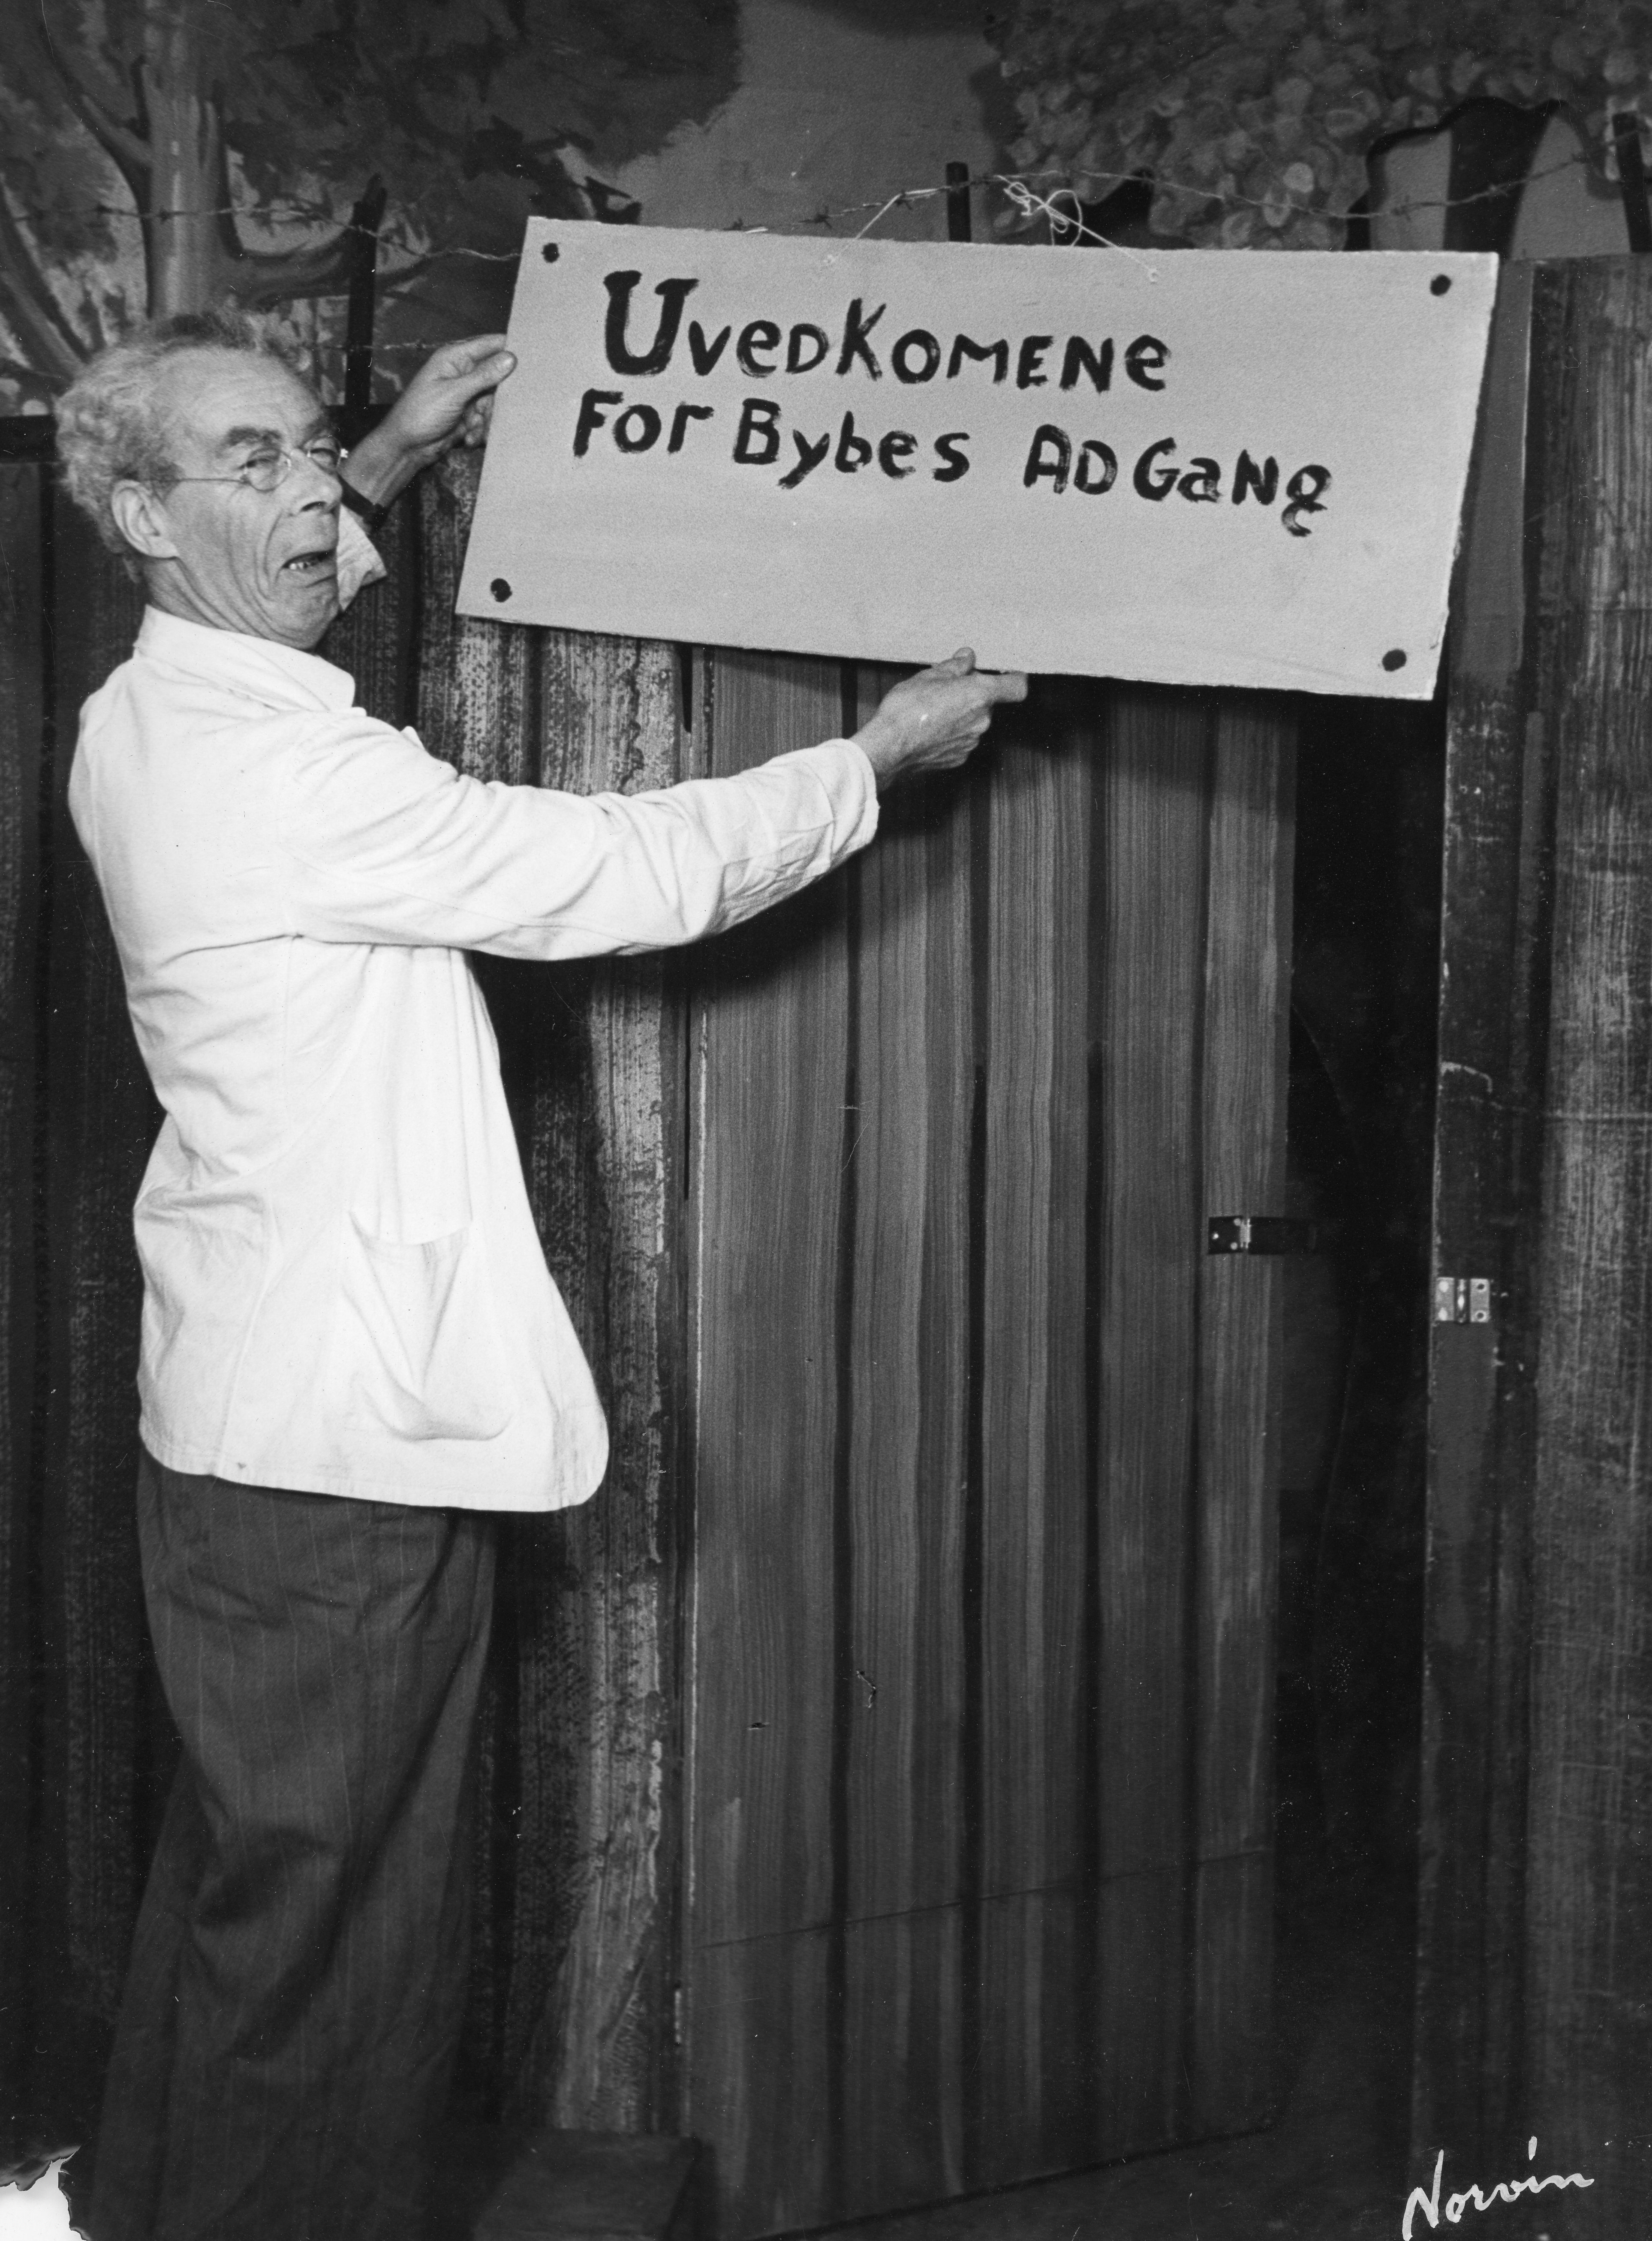 UveDKOMENe
For Bybes ADGaNg
Norvin